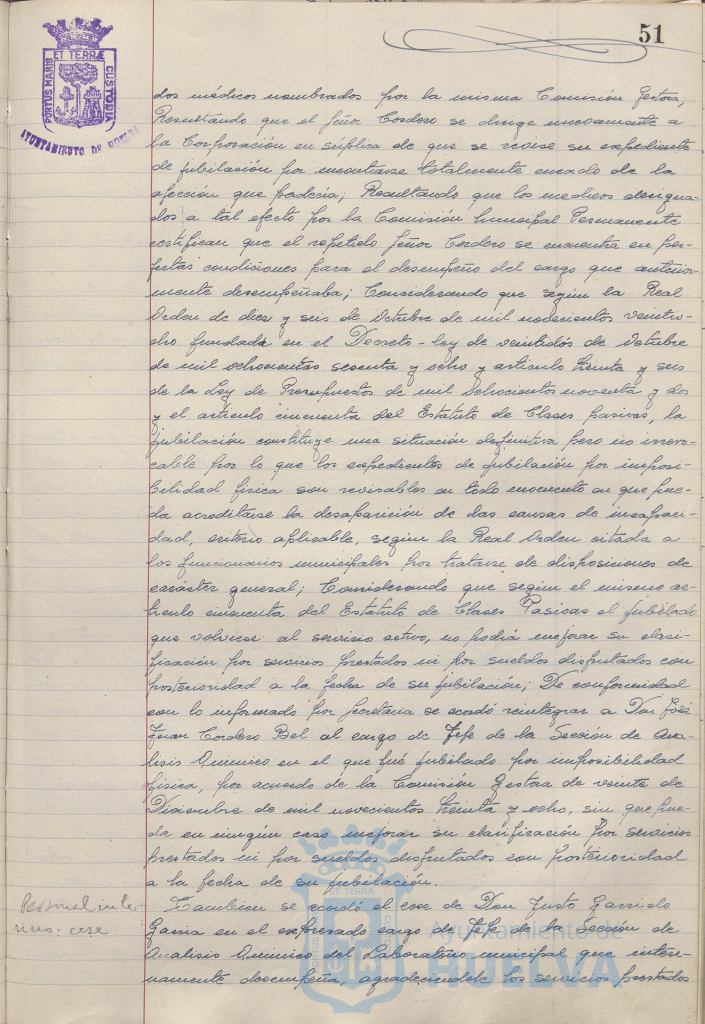 51
PORTUS MARIS ET TERRÆ CUSTODIA
AYUNTAMIENTO DE HUELVA
dos médicos nombrados por la misma Comisión Gestora,
Resultando que el Señor Cordero se dirige nuevamente a
la Corporación en súplica de que se revise su expediente
de jubilación por encontrarse totalmente curado de la
afección que padecía; Resultando que los medicos designa-
dos a tal efecto por la Comisión Municipal Permanente
certifican que el repetido Señor Cordero se encuentra en per-
fectas condiciones para el desempeño del cargo que anterior-
mente desempeñaba; Considerando que según la Real
Orden de diez y seis de Octubre de mil novecientos veintio-
cho fundada en el Decreto-ley de veintidós de Octubre
de mil ochocientos sesenta y ocho y articulo treinta y seis
de la Ley de Presupuestos de mil ochocientos noventa y dos
y el artículo cincuenta del Estatuto de Clases pasivas, la
jubilación constituye una situación definitiva pero no irrevo-
cable por lo que los expedientes de jubilación por imposi-
bilidad física son revisables en todo momento en que pue-
da acreditarse la desaparición de las causas de incapaci-
dad, criterio aplicable, según la Real Orden citada a
los funcionarios municipales por tratarse de disposiciones de
carácter general; Considerando que según el mismo ar-
ticulo cincuenta del Estatuto de Clases Pasivas el jubilado
que volviese al servicio activo, no podrá mejorar su clasi-
ficación por servicios prestados ni por sueldos disfrutados con
posterioridad a la fecha de su jubilación; De conformidad
con lo informado por Secretaria se acordó reintegrar a Don José
Juan Cordero Bel al cargo de Jefe de la Sección de Aná-
lisis Químico en el que fué jubilado por imposibilidad
física, por acuerdo de la Comisión Gestora de veinte de
Diciembre de mil novecientos treinta y ocho, sin que pue-
da en ningún caso mejorar su clasificación por servicios
prestados ni por sueldos disfrutados con posterioridad
a la fecha de su jubilación.
Personal inte-
rino: cese
Tambien se acordó el cese de Don Justo Garrido
Garcia en el expresado cargo de Jefe de la Sección de
Analisis Quimico del Laboratorio municipal que interi-
namente desempeña, agradeciendole los servicios prestados
Ayuntamiento de
HUELVA